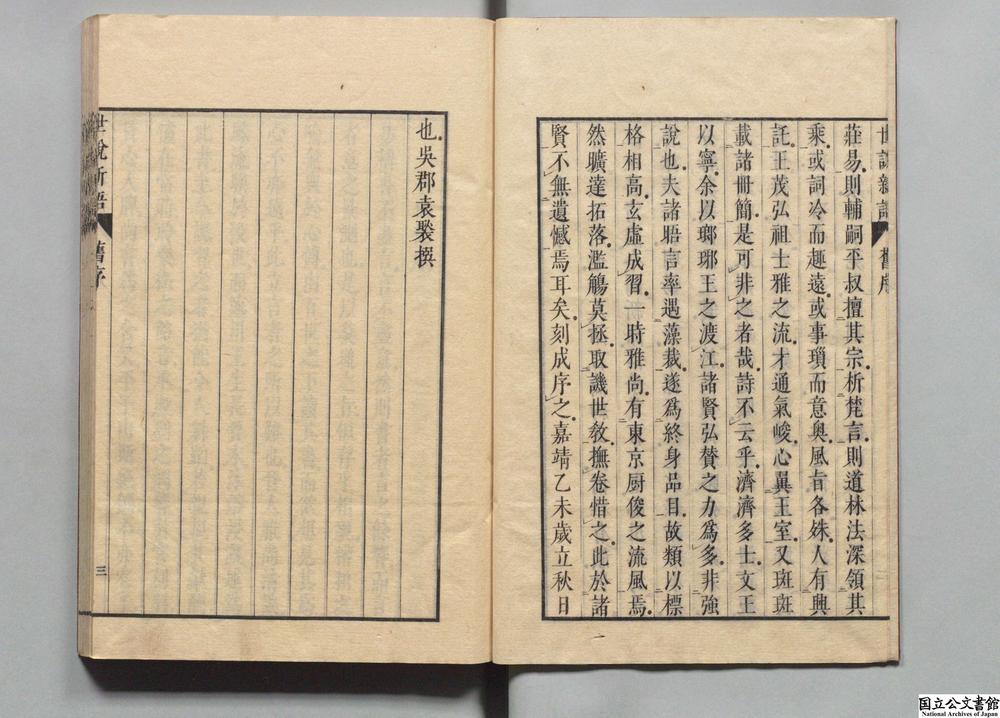 世說新語 舊序
莊易則輔嗣平叔擅其宗析梵言則道林法深領其
乘或詞冷而趣遠或事瑣而意奧風旨各殊人有興
託王茂弘祖士雅之流才通氣峻心翼王室又斑斑
載諸冊簡是可非之者哉詩不云乎濟濟多士文王
以寧余以瑯琊王之渡江諸賢弘贊之力爲多非強
說也夫諸晤言率遇藻裁遂爲終身品目故類以標
格相高玄虛成習一時雅尚有東京厨俊之流風焉
然曠達拓落濫觴莫拯取譏世敎撫卷惜之此於諸
賢不無遺憾焉耳矣刻成序之嘉靖乙未歲立秋日
也吳郡袁褧撰
世說新語 舊序
三
国立公文書館
National Archives of Japan